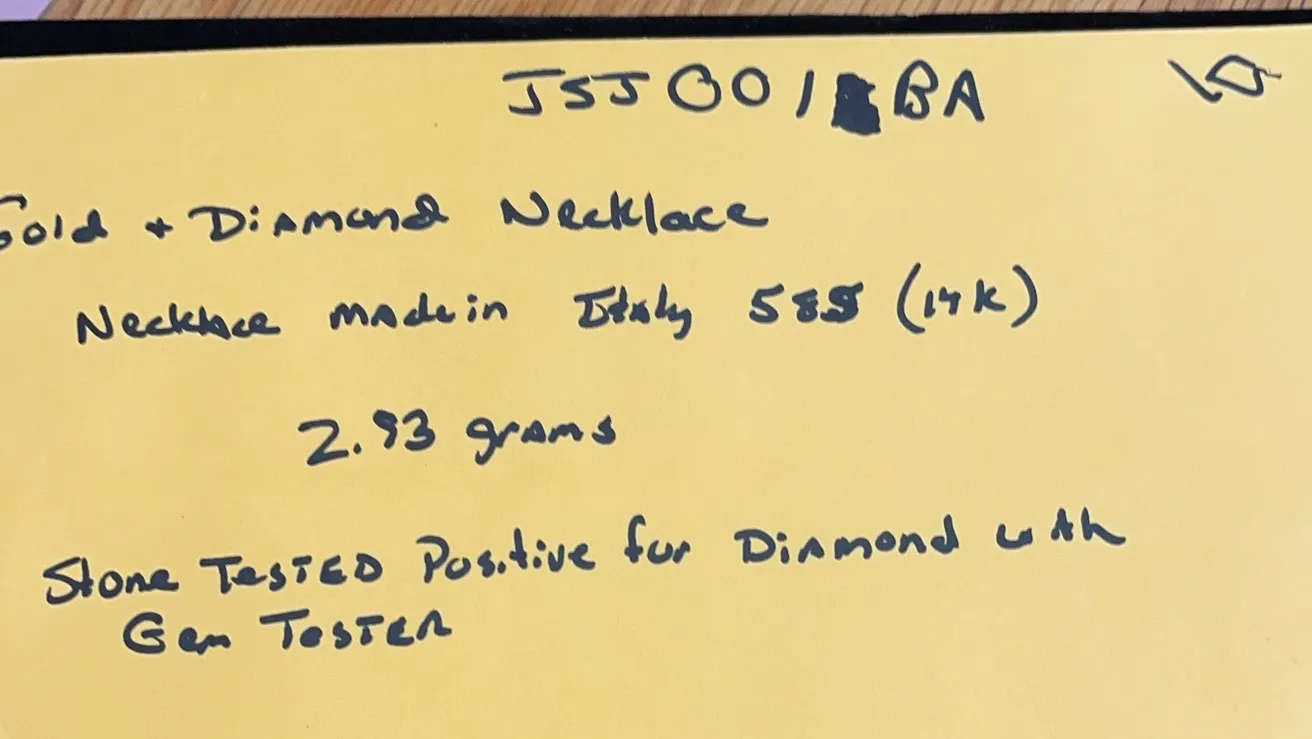 JSJ001 BA 10
Gold + Diamond Necklace
Necklace made in Italy 585 (14K)
2.93 grams
Stone TESTED Positive for Diamond with
Gem TESTER